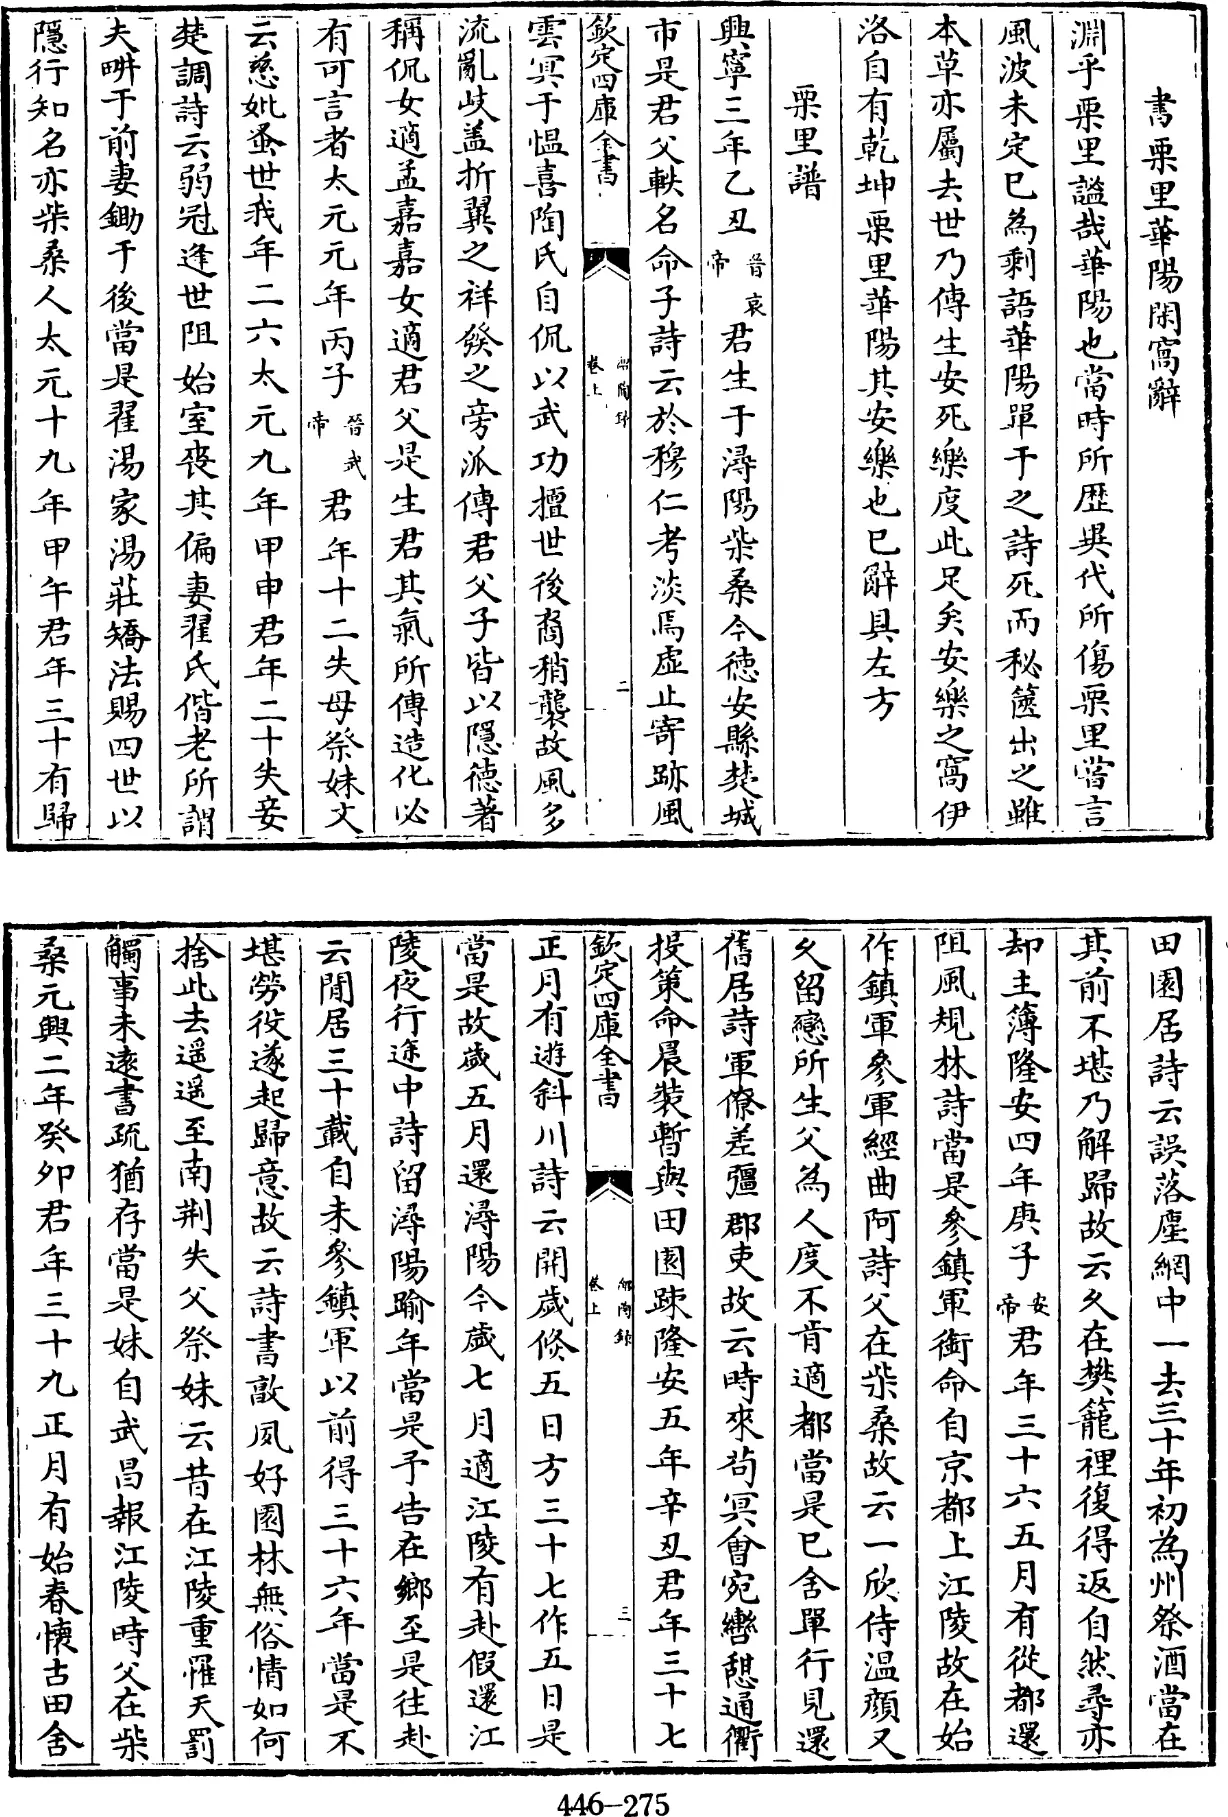 書栗里華陽閑窩辭
淵乎栗里謐哉華陽也當時所歷異代所傷栗里嘗言
風波未定已為剩語華陽單于之詩死而秘篋出之雖
本草亦屬去世乃傳生安死樂度此足矣安樂之窩伊
洛自有乾坤栗里華陽其安樂也已辭具左方
栗里譜
興寧三年乙丑晉哀帝君生于潯陽柴桑今德安縣楚城
市是君父軼名命子詩云於穆仁考淡焉虛止寄跡風
欽定四庫全書
卷上
二
雲冥于愠喜陶氏自侃以武功擅世後裔稍襲故風多
流亂岐盖折翼之祥發之旁派傳君父子皆以隱德著
稱侃女適孟嘉嘉女適君父是生君其氣所傳造化必
有可言者太元元年丙子晉武帝君年十二失母祭妹文
云慈妣蚤世我年二六太元九年甲申君年二十失妾
楚調詩云弱冠逢世阻始室喪其偏妻翟氏偕老所謂
夫畊于前妻鋤于後當是翟湯家湯莊矯法賜四世以
隱行知名亦柴桑人太元十九年甲午君年三十有歸
田園居詩云誤落塵網中一去三十年初為州祭酒當在
其前不堪乃解歸故云久在樊籠裡復得返自然尋亦
却主簿隆安四年庚子安帝君年三十六五月有從都還
阻風規林詩當是參鎮軍銜命自京都上江陵故在始
作鎮軍參軍經曲阿詩父在柴桑故云一欣侍温顔又
久留戀所生父為人度不肯適都當是已舍單行見還
舊居詩軍僚差彊郡吏故云時來苟冥會宛轡憇通衢
投策命晨裝暫與田園踈隆安五年辛丑君年三十七
欽定四庫全書
卷上
三
正月有遊斜川詩云開歲倐五日方三十七作五日是
當是故歲五月還潯陽今歲七月適江陵有赴假還江
陵夜行途中詩留潯陽踰年當是予告在鄉至是往赴
云閒居三十載自未參鎮軍以前得三十六年當是不
堪勞役遂起歸意故云詩書敦夙好園林無俗情如何
捨此去遥遥至南荆失父祭妹云昔在江陵重罹天罰
觸事未逺書疏猶存當是妹自武昌報江陵時父在柴
桑元興二年癸卯君年三十九正月有始春懷古田舍
446-275